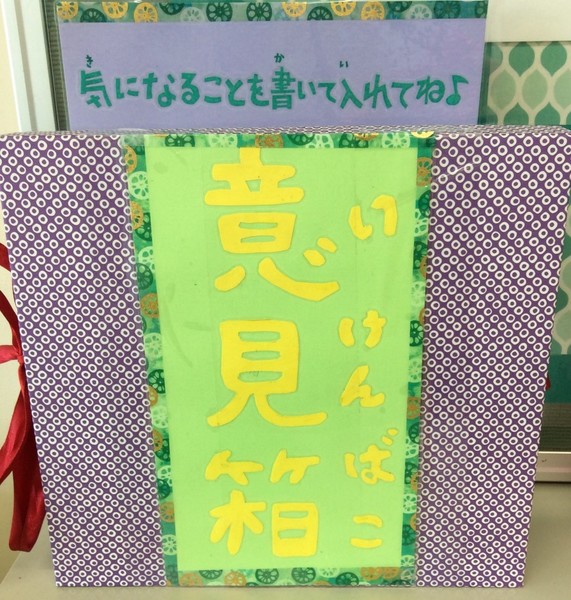 き か い
気になることを書いて入れてね♪
意見箱
いけんばこ